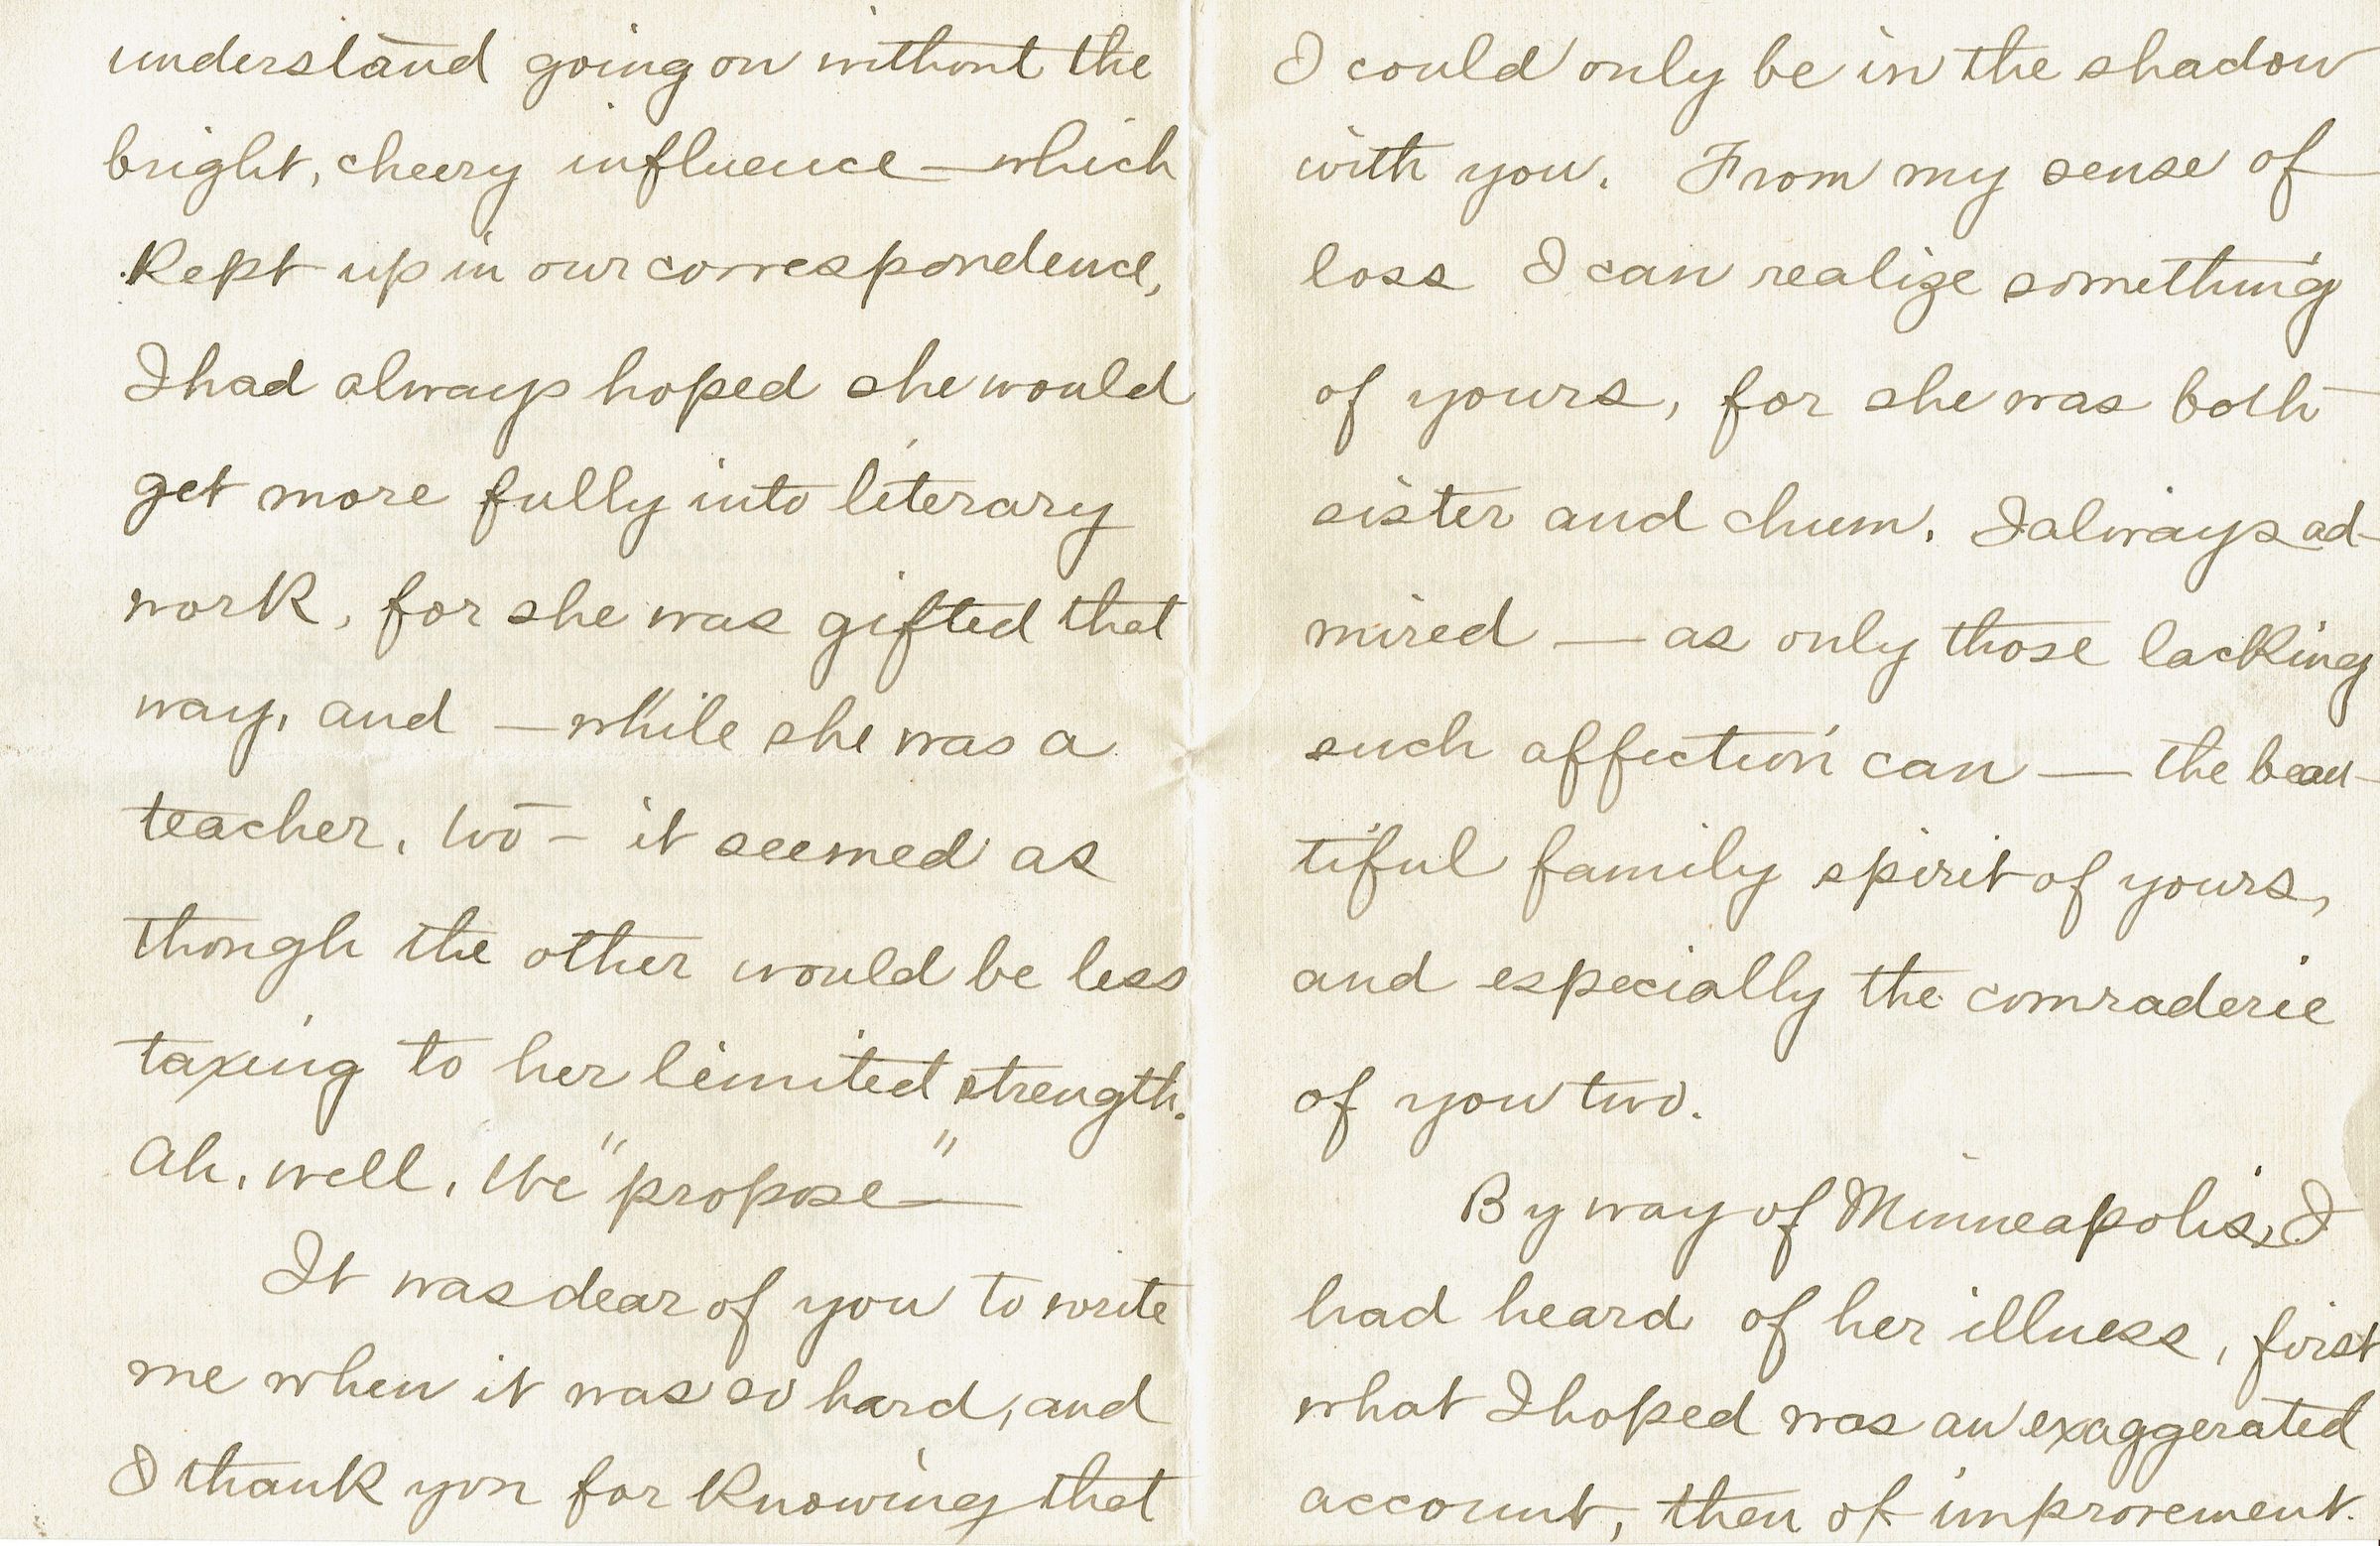 understand going on without the
bright, cheery influence — which
Kept up in our correspondence,
I had always hoped she would
get more fully into literary
work, for she was gifted that
way, and — while she was a
teacher, too — it seemed as
though the other would be less
taxing to her limited strength.
Ah, well, We "propose" —
It was dear of you to write
me when it was so hard, and
I thank you for Knowing that
I could only be in the shadow
with you. From my sense of
loss I can realize something
of yours, for she was both
sister and chum. I always ad-
mired — as only those lacking
such affection can — the beau-
tiful family spirit of yours,
and especially the comraderie
of you two.
By way of Minneapolis, I
had heard of her illness, first
what I hoped was an exaggerated
account, then of improvement.